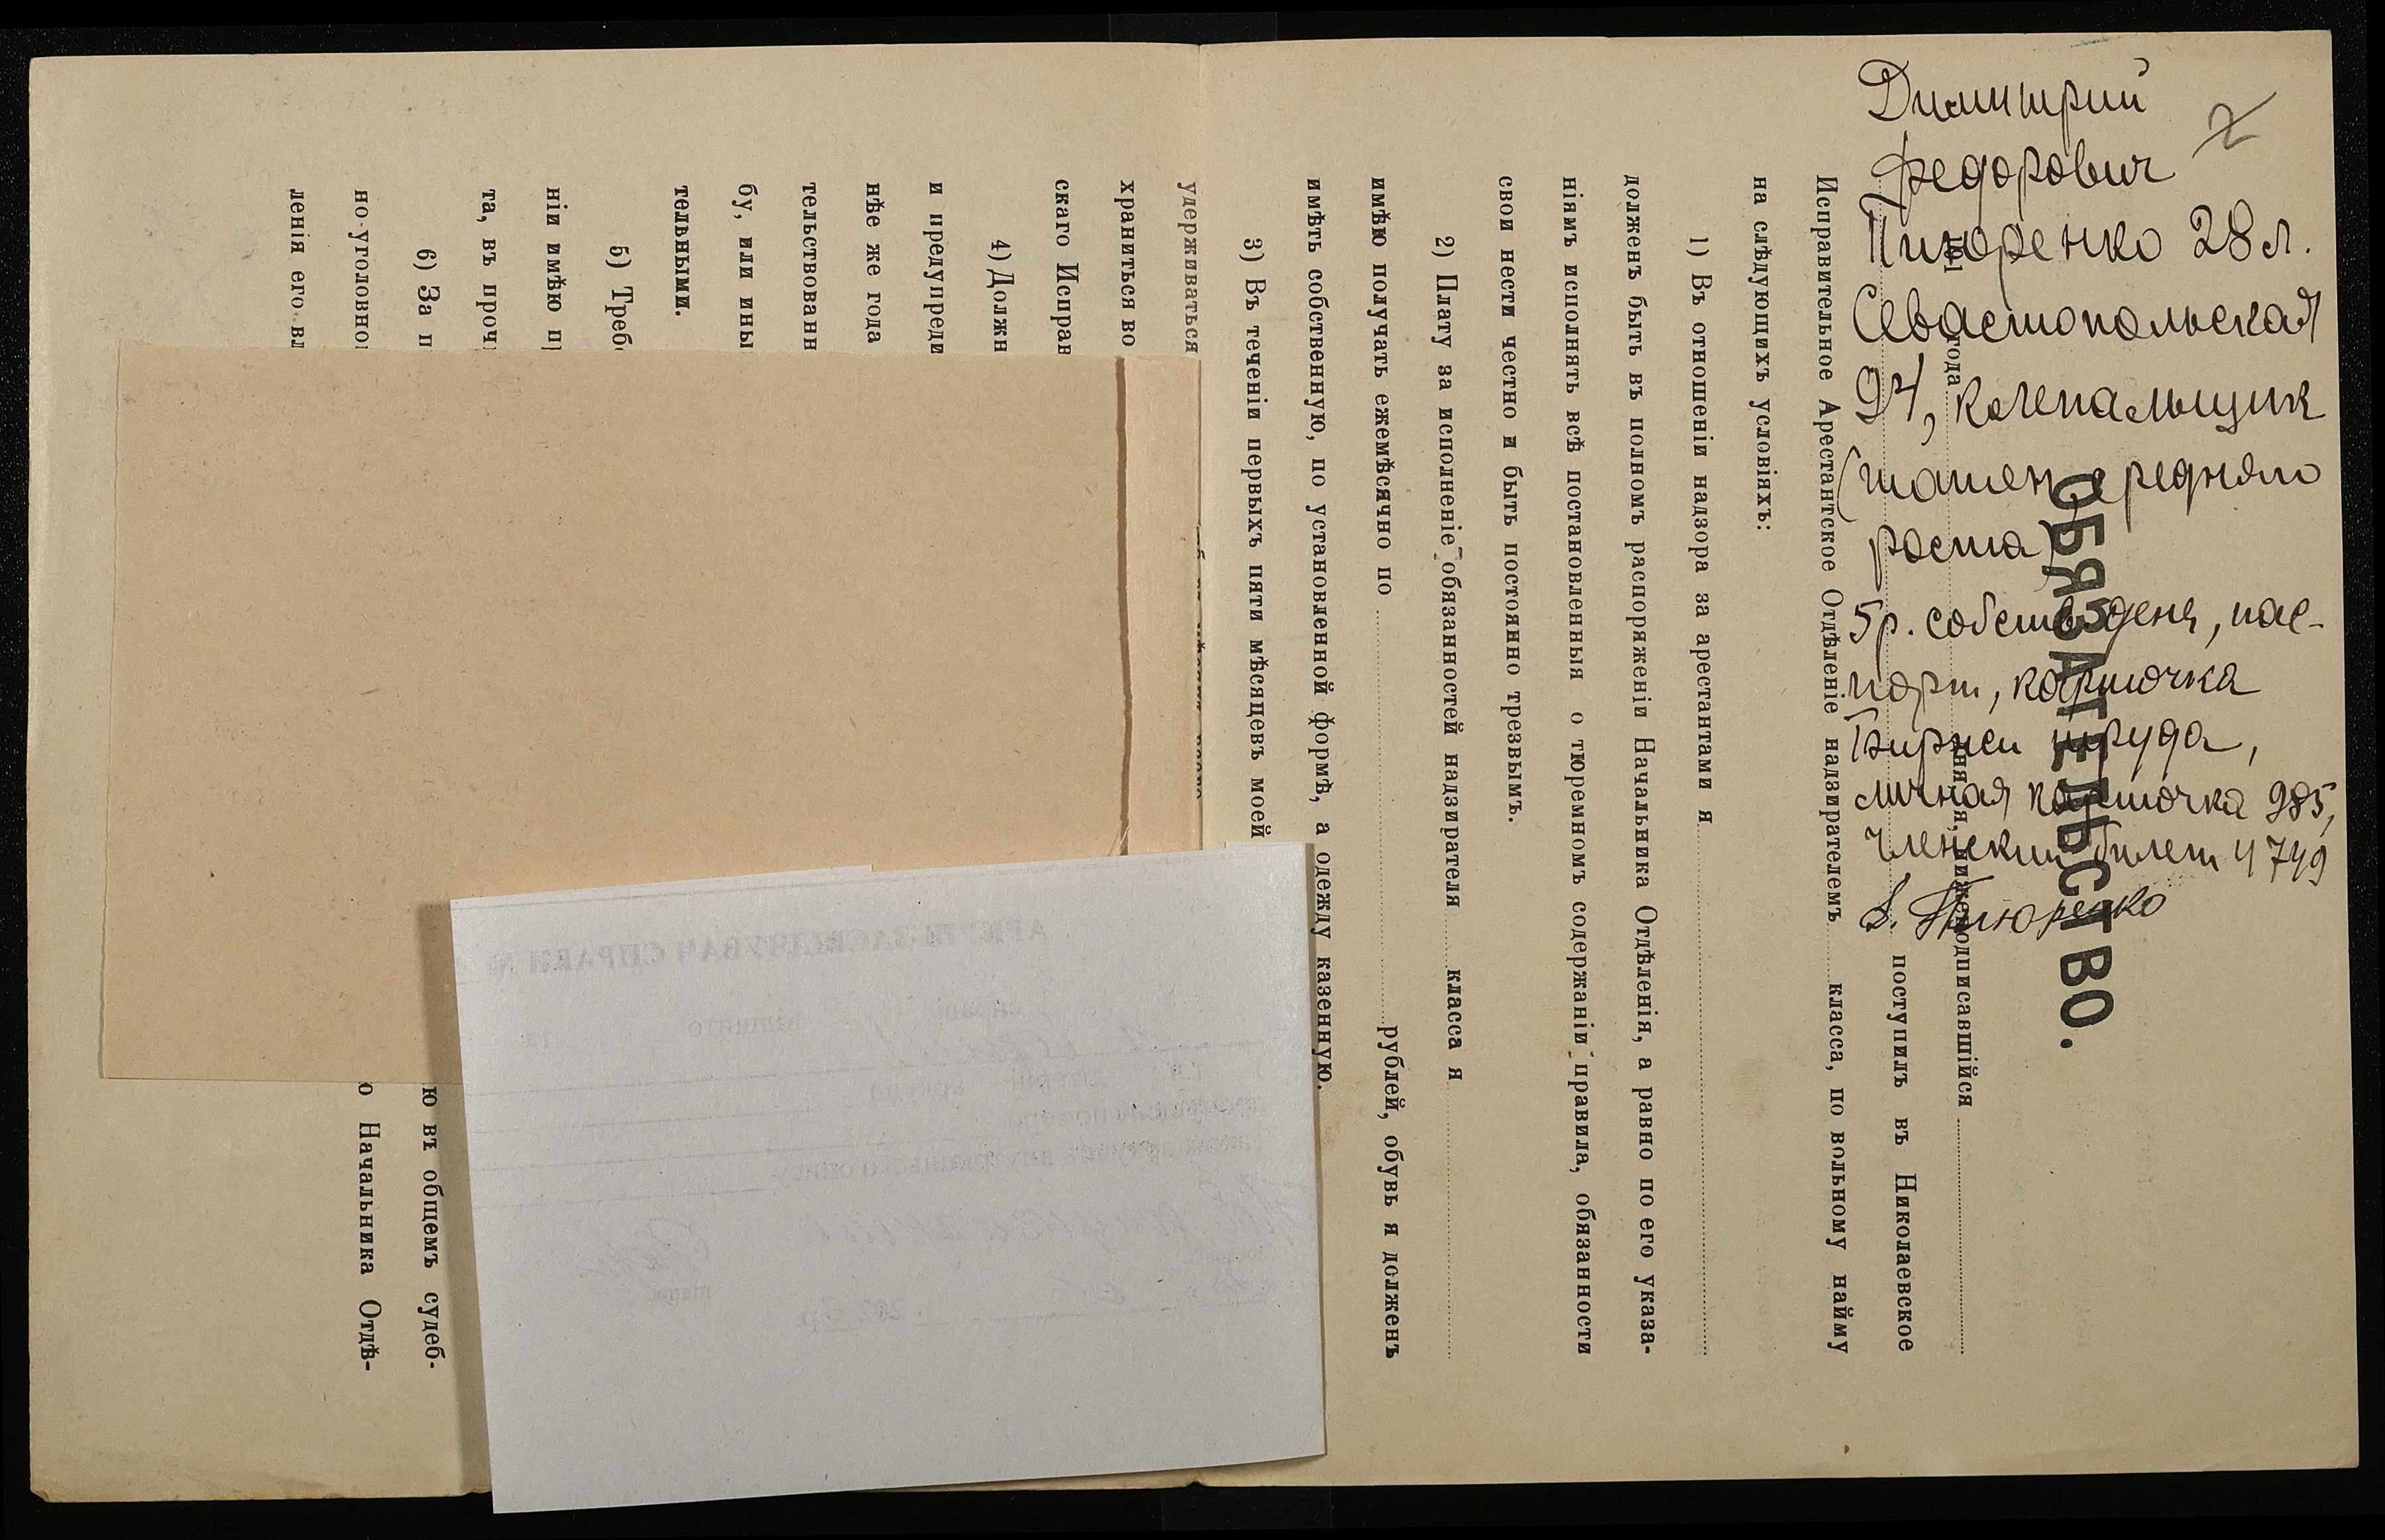 Димитрий
Федорович
Пиюренко 28 л.
Севастопольская
94, клепальщик
(шатен среднего
роста)
5 р. собств. денег, пас-
порт, карточка
Биржи труда,
личная карточка 985,
членский билет 4749
Д. Пиюренко
ОБЯЗАТЕЛЬСТВО.
года дня, нижеподписавшійся
поступилъ въ Николаевское
Исправительное Арестантское Отдѣленіе надзирателемъ класса, по вольному найму
на слѣдующихъ условіяхъ:
1) Въ отношеніи надзора за арестантами я
долженъ быть въ полномъ распоряженіи Начальника Отдѣленія, а равно по его указа-
ніямъ исполнять всѣ постановленныя о тюремномъ содержаніи правила, обязанности
свои нести честно и быть постоянно трезвымъ.
2) Плату за исполненіе обязанностей надзирателя класса я
имѣю получать ежемѣсячно по рублей, обувь я долженъ
имѣть собственную, по установленной формѣ, а одежду казенную.
3) Въ теченіи первыхъ пяти мѣсяцевъ моей
удерживаться
храниться во
скаго Исправ
4) Должн
и предупреди
нѣе же года
тельствованн
бу, или ины
тельными.
5) Треб
ніи имѣю п
та, въ проч
6) За п ю въ общемъ судеб-
но-уголовно о Начальника Отдѣ-
ленія его вл